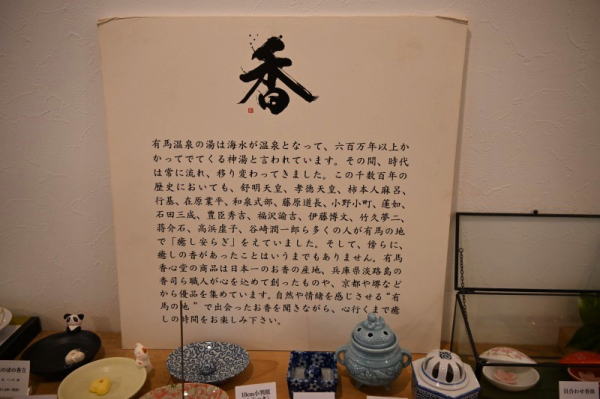 香
有馬温泉の湯は海水が温泉となって、六百万年以上か
かってでてくる神湯と言われています。その間、時代
は常に流れ、移り変わってきました。この千数百年の
歴史においても、舒明天皇、孝徳天皇、柿本人麻呂、
行基、在原業平、和泉式部、藤原道長、小野小町、蓮如、
石田三成、豊臣秀吉、福沢諭吉、伊藤博文、竹久夢二、
蒋介石、高浜虚子、谷崎潤一郎ら多くの人が有馬の地
で「癒し安らぎ」をえていました。そして、傍らに、
癒しの香があったことはいうまでもありません。有馬
香心堂の商品は日本一のお香の産地、兵庫県淡路島の
香司ら職人が心を込めて創ったものや、京都や堺など
から優品を集めています。自然や情緒を感じさせる“有
馬の地”で出会ったお香を聞きながら、心行くまで癒
しの時間をお楽しみ下さい。